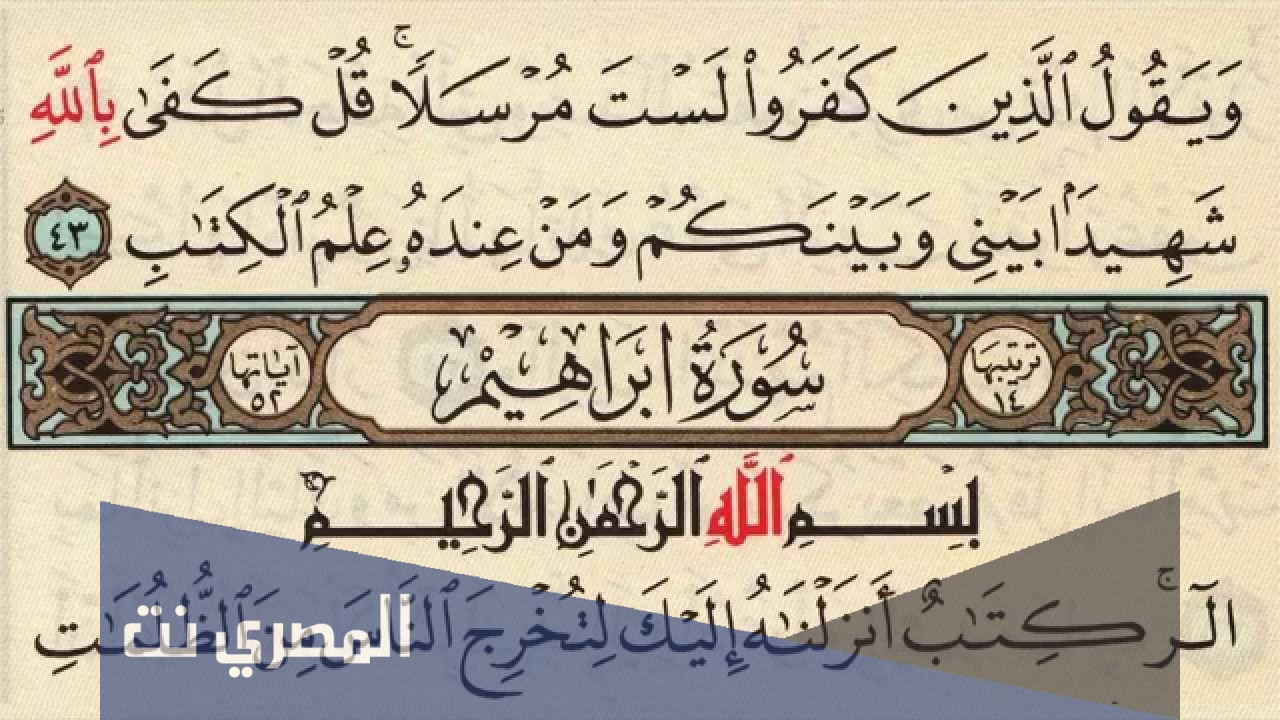 وَيَقُولُ ٱلَّذِينَ كَفَرُوا۟ لَسْتَ مُرْسَلًا ۚ قُلْ كَفَىٰ بِٱللَّهِ
شَهِيدًۢا بَيْنِى وَبَيْنَكُمْ وَمَنْ عِندَهُۥ عِلْمُ ٱلْكِتَٰبِ ٤٣
ترتيبها
١٤
سُورَةُ ابْرَاهِيْمْ
آياتها
٥٢
بِسْمِ ٱللَّهِ ٱلرَّحْمَٰنِ ٱلرَّحِيمِ
الٓر ۚ كِتَٰبٌ أَنزَلْنَٰهُ إِلَيْكَ لِتُخْرِجَ ٱلنَّاسَ مِنَ ٱلظُّلُمَٰتِ
المصري نت